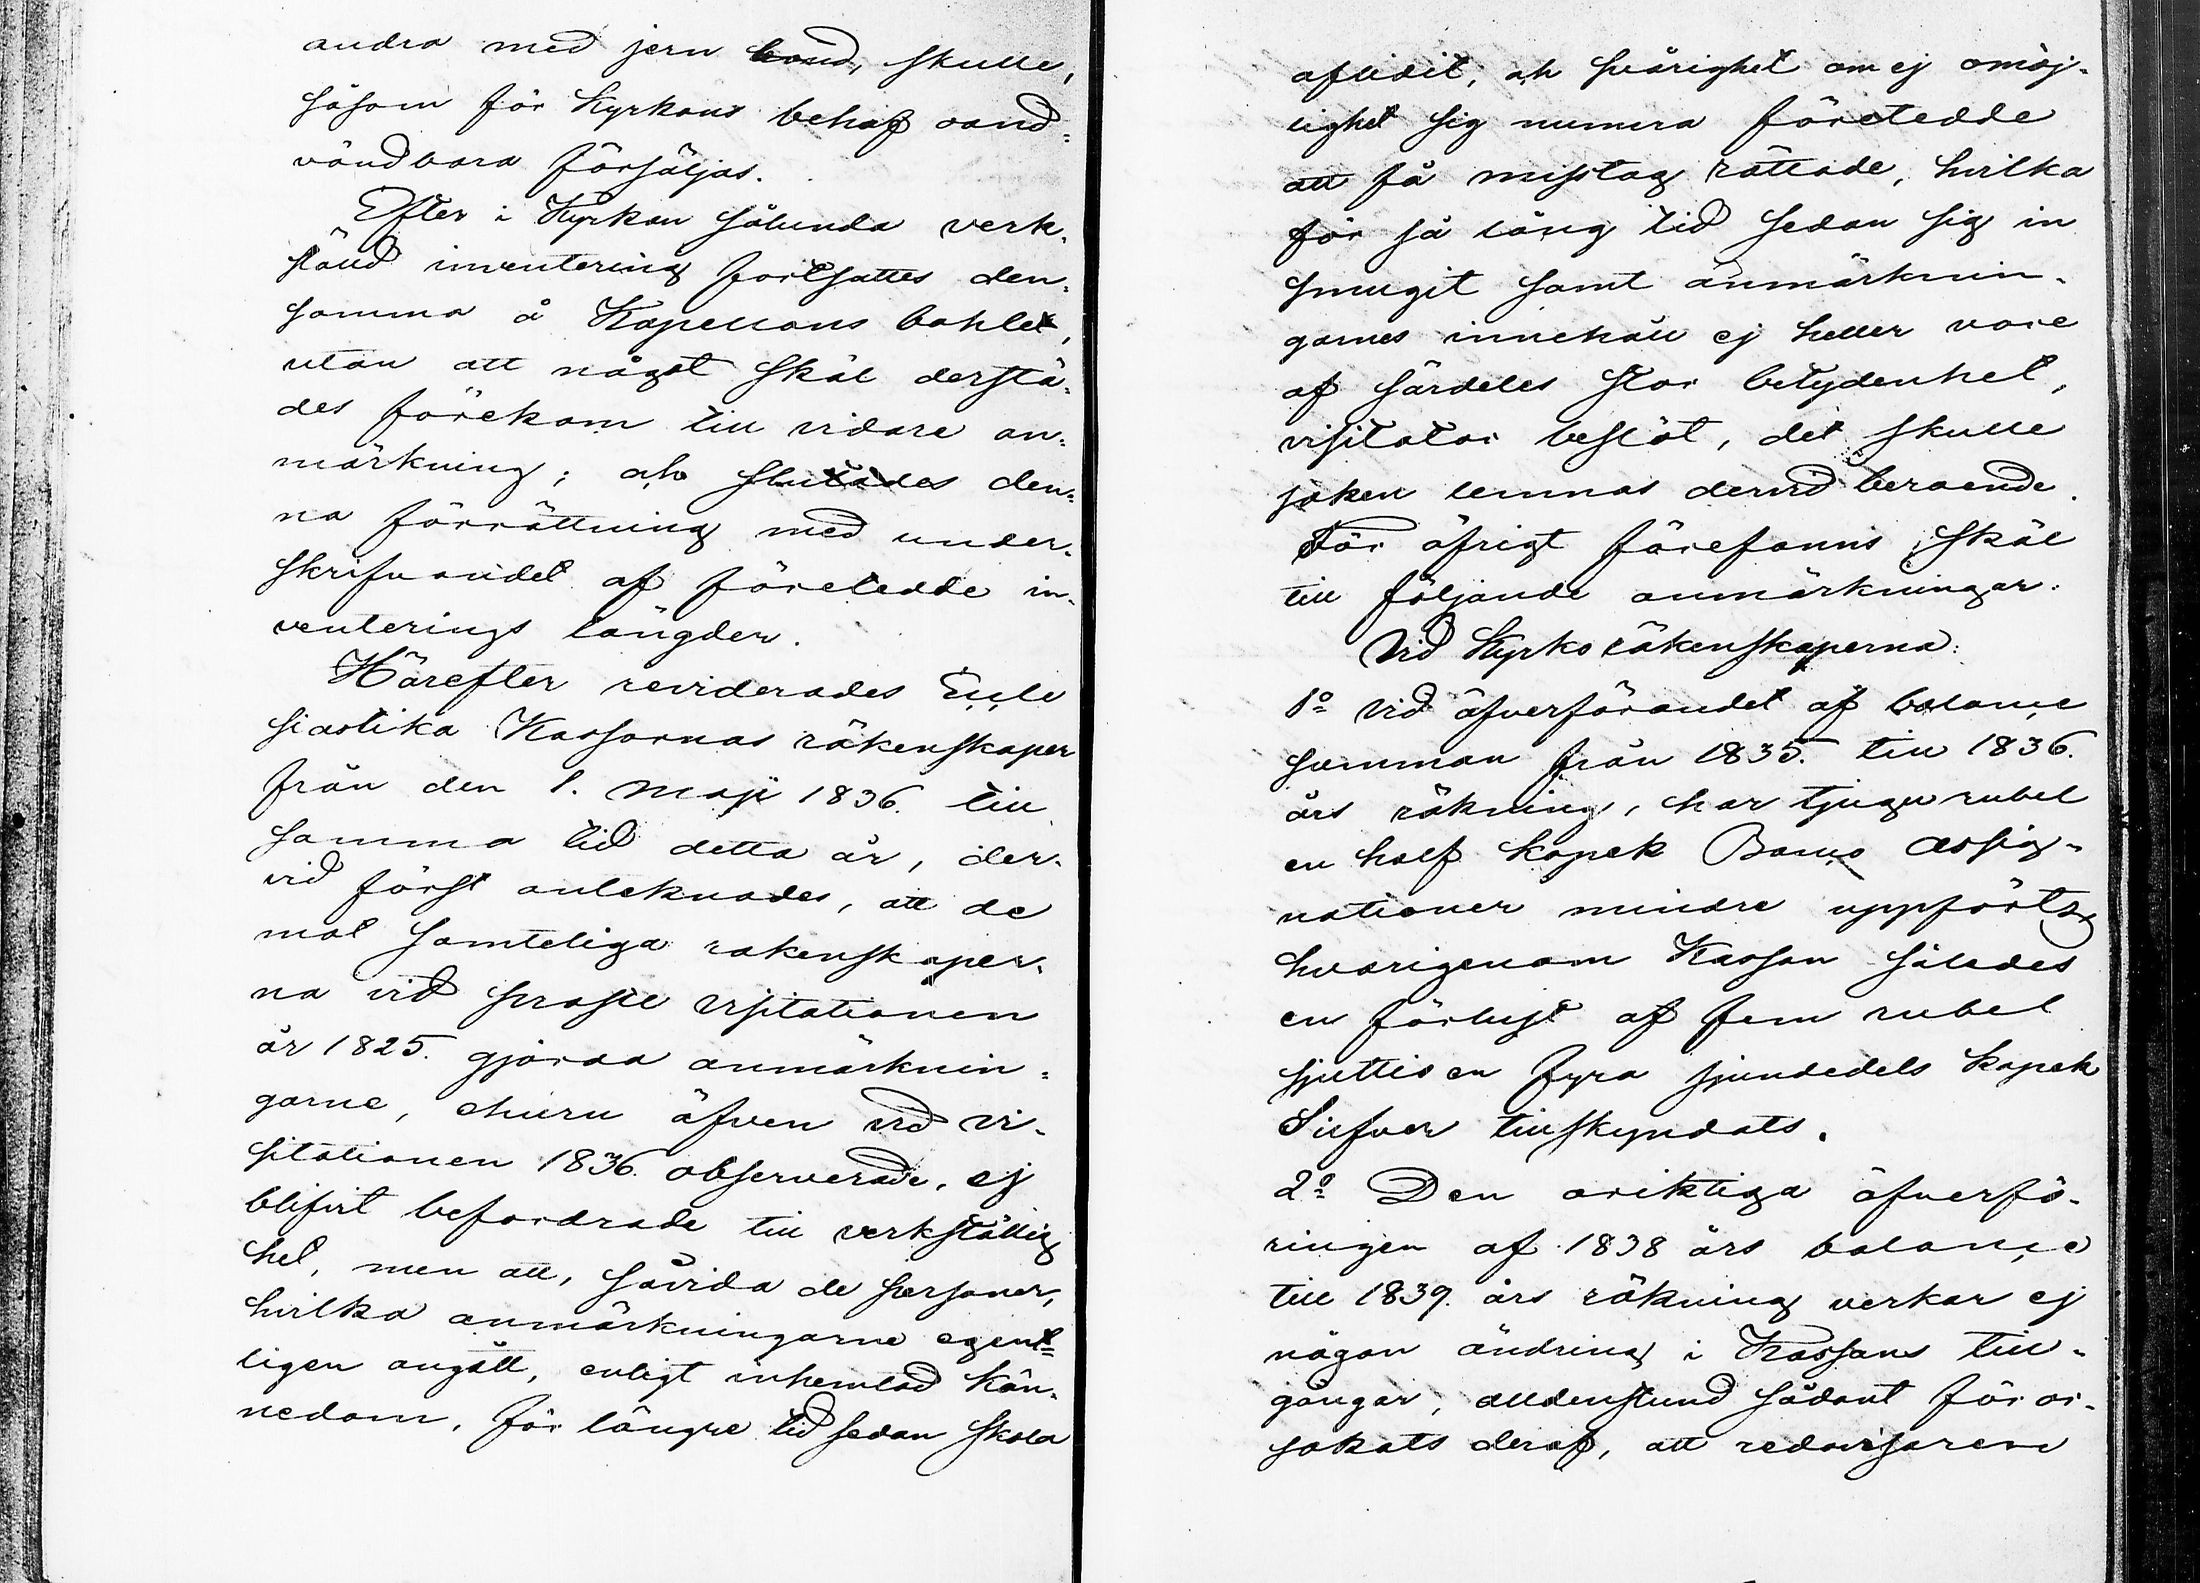 andra med jern band, skulle,
såsom för Kyrkans behof oand-
vändbara försäljas.
Efter i Kyrkan sålunda verk-
stäld inventering fortsattes den-
samma å Kapellans bohlet,
utan att något skäl derstä-
des förekom till vidare an-
märkning; och slutades den-
na förrättning med under-
skrifvandet af företedde in-
venterings längder.
Härefter reviderades Eccle
siastika Kassornas räkenskaper
från den 1. Maji 1836. till
samma tid detta år, der-
vid först anteknades, att de
mot samteliga räkenskaper-
na vid proste visitationen
år 1825. gjorda anmärknin-
garne, ehuru äfven vid vi-
sitationen 1836. observerade, ej
blifvit befordrade till verkställig
het, men att, såvida de personer,
hvilka anmärkningarne egent-
ligen angått, enligt inhemtad kän-
nedom, för längre tid sedan skola
aflidit; och svårighet om ej omöj-
lighet sig numera företedde
att få misstag rättade, hvilka
för så lång tid sedan sig in
smugit samt anmärknin-
garnes innehåll ej heller vore
af särdeles stor betydenhet,
visitator beslöt, det skulle
saken lemnas dervid beroende.
För öfrigt förefanns skäl
till följande anmärkningar:
Vid Kyrko räkenskaperna:
1º Vid äfverförandet af balance
summan från 1835. till 1836.
års räkning, har tjugu rubel
en half kopek Banco Assig-
nationer mindre uppförts,
hvarigenom Kassan således
en förlust af fem rubel
sjuttio en fyra sjundedels kopek
Silfver tillskyndats.
2º Den oriktiga öfverfö-
ringen af 1838 års balance
till 1839. års räkning verkar ej
någon ändring i Kassans till-
gångar, alldenstund sådant för or-
sakats deraf, att redovisarene